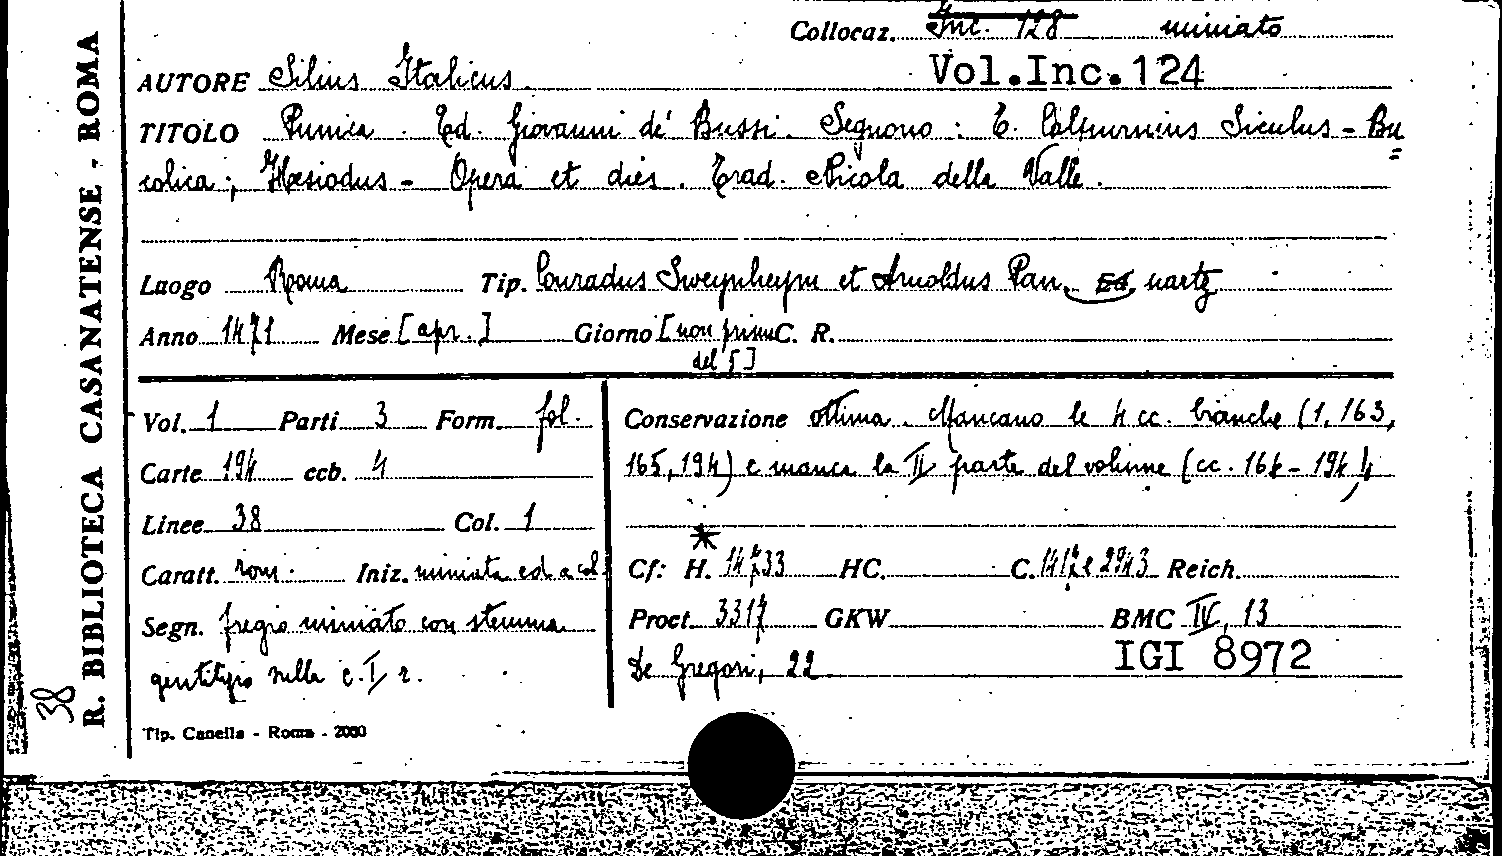 Collocaz. Inc. 128 miniato
Vol.Inc.124
AUTORE Silius Italicus
TITOLO Punica. Ed. Giovanni de' Bussi. Seguono: T. Calpurnius Siculus - Bu=
colica; Hesiodus - Opera et dies. Trad. Nicola della Valle.
Luogo Roma Tip. Conradus Sweynheym et Arnoldus Pan nartz
Anno 1471 Mese [apr.] Giorno [non prima C. R.
del 5]
Vol. 1 Parti 3 Form. fol.
Carte 194 ccb. 4
Linee 38 Col. 1
Caratt. rom. Iniz. miniata ed a col.
Segn. fregio miniato con stemma
gentilizio nella c. I r.
Conservazione ottima. Mancano le 4 cc. bianche (1, 163,
165, 194) e manca la II parte del volume (cc. 164-194)
Cf: H. * 14733 HC. C. 1417 e 2943 Reich.
Proct. 3317 GKW BMC IV, 13
De Gregori, 22 IGI 8972
Tip. Canella - Roma - 2000
R. BIBLIOTECA CASANATENSE - ROMA
38